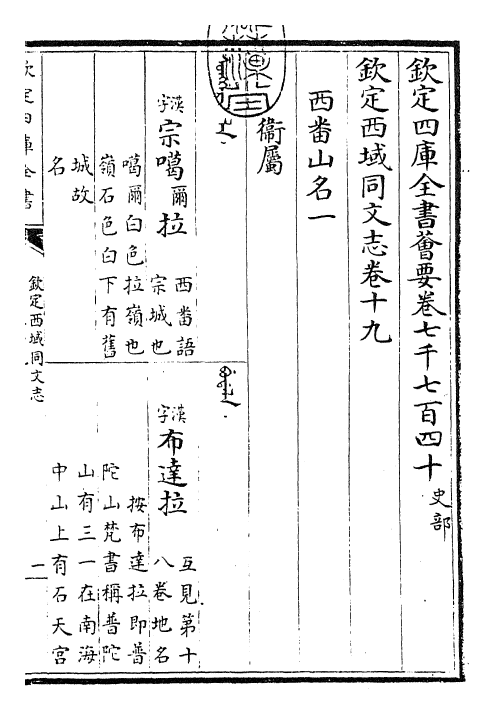 欽定四庫全書薈要卷七千七百四十史部
欽定西域同文志卷十九
西番山名一
衛屬
漢字宗噶爾拉
西番語
宗城也
噶爾白色拉嶺也
嶺石色白下有舊
城故
名
漢字布達拉
互見第十
八卷地名
按布達拉即普
陀山梵書稱普陀
山有三一在南海
中山上有石天宫
欽定四庫全書
欽定西域同文志
一